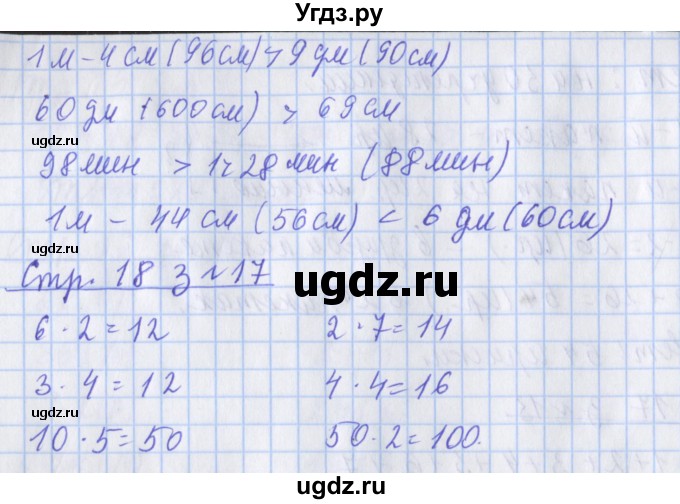 Угдз.ру
1 м - 4 см (96 см) > 9 дм (90 см)
60 дм (600 см) > 69 см
98 мин > 1ч 28 мин (88 мин)
1 м - 44 см (56 см) < 6 дм (60 см)
ugdz.ru
Стр. 18 з №17
ugdz.ru
6 · 2 = 12 2 · 7 = 14
3 · 4 = 12 4 · 4 = 16
10 · 5 = 50 50 · 2 = 100.
ugdz.ru
ugdz.ru
ugdz.ru
ugdz.ru
ugdz.ru
ugdz.ru